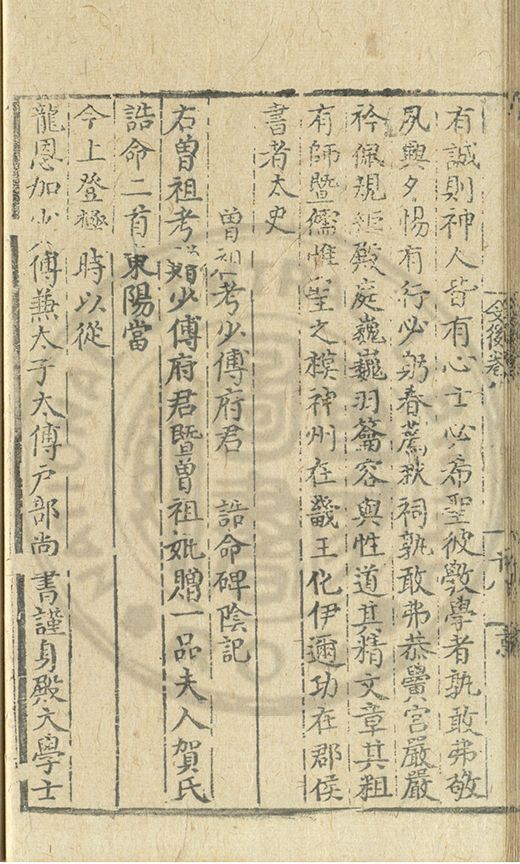 有誠則神人皆有心士必希聖彼斆學者孰敢弗敬
夙興夕惕有行必躬春薦秋祠孰敢弗恭黌宮嚴嚴
衿佩規矩殿庭巍巍羽籥容與性道其精文章其粗
有師曁儒惟聖之模神州在畿王化伊邇功在郡侯
書者太史
曾祖考少傅府君 誥命碑陰記
右曾祖考贈少傅府君曁曾祖妣贈一品夫人賀氏
誥命二首東陽當
今上登極 時以從
龍恩加少傅兼太子太傅戶部尚書謹身殿大學士
後卷